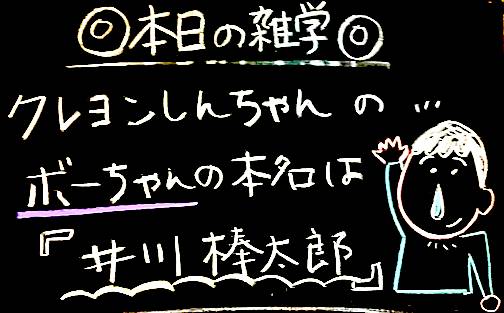 ◎本日の雑学◎
クレヨンしんちゃんの…
ボーちゃんの本名は
『井川棒太郎』